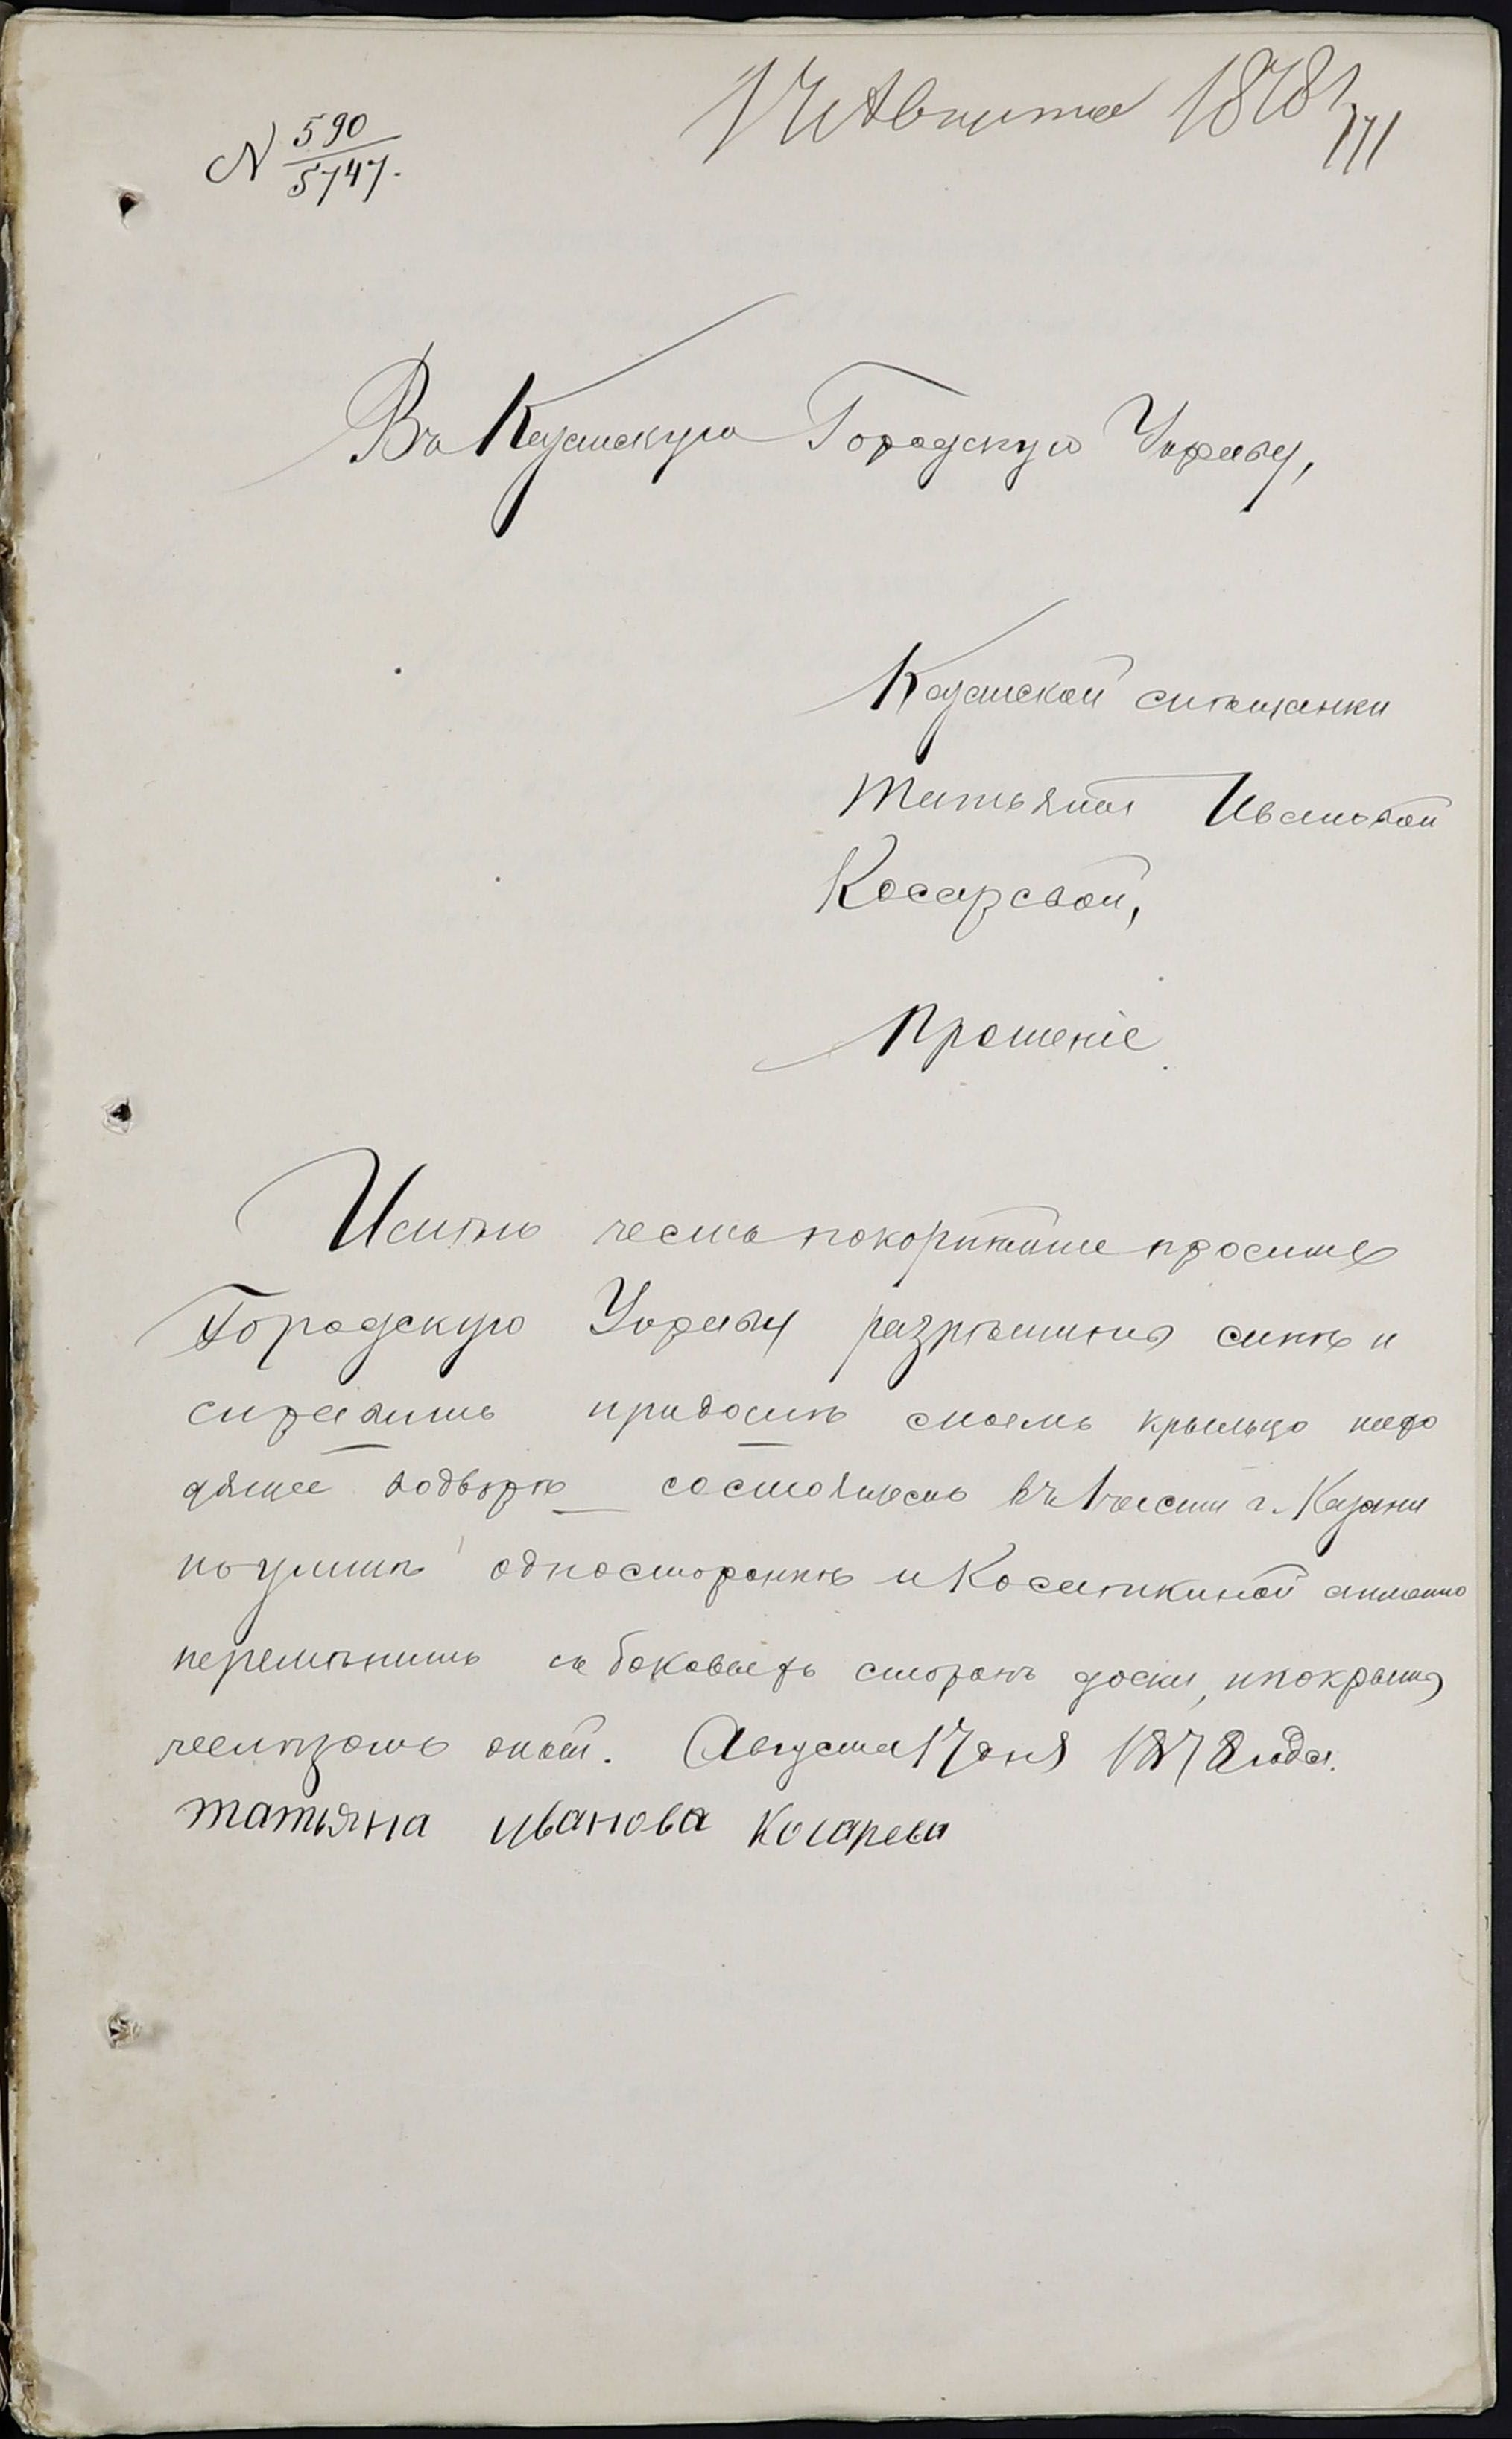 17 Августа 1878 г
№ 590/5747.
Въ Казанскую Городскую Управу,
Казанской мѣщанки
Татьяной Ивановой
Косаревой,
Прошеніе
Имѣю честь покорнѣйше просить
Городскую Управу разрѣшить мнѣ и
справить придомѣ моемъ крыльцо нахо
дящее водворѣ состоящемъ въ 1 части г. Казани
поулицѣ односторонкѣ и Косаткиной аименно
перемѣнить съ боковыхъ сторонъ доски, ипокрыть
железомъ Августа 17 дня 1878 года.
татьяна иванова Косарева